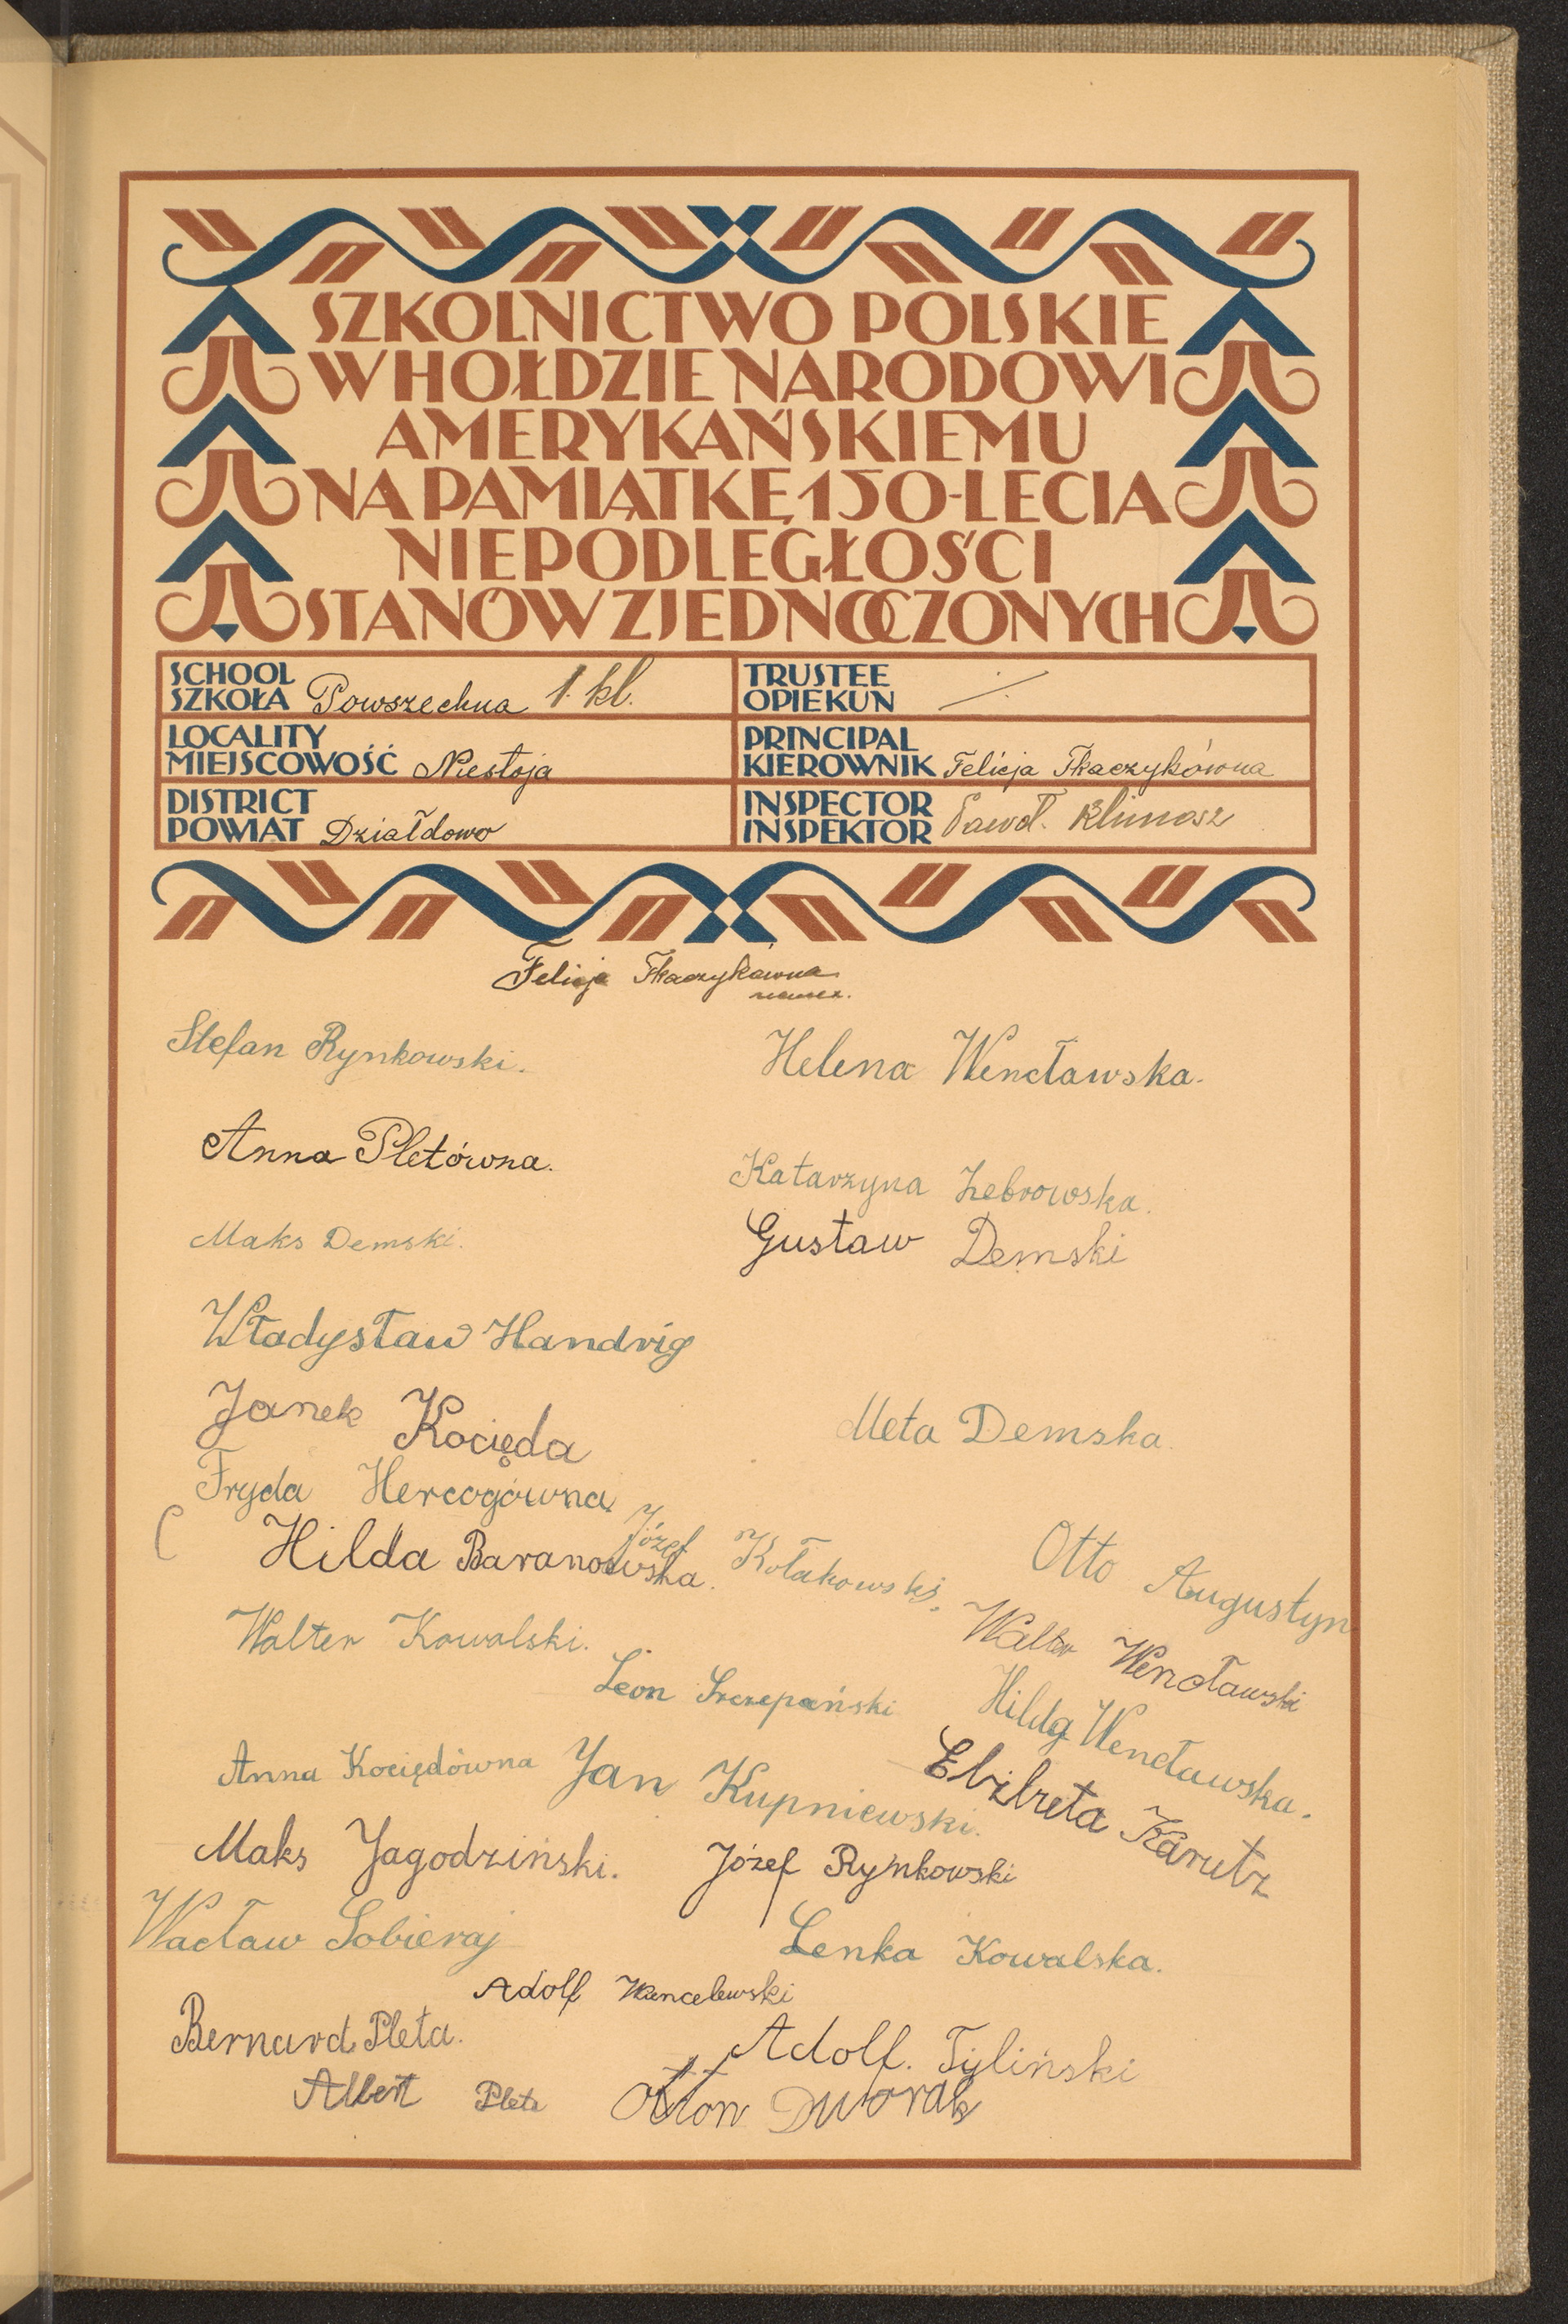 SZKOLNICTWO POLSKIE
W HOŁDZIE NARODOWI
AMERYKAŃSKIEMU
NA PAMIĄTKĘ 150-LECIA
NIEPODLEGŁOŚCI
STANÓW ZJEDNOCZONYCH
SCHOOL
SZKOŁA Powszechna 1. kl.
TRUSTEE
OPIEKUN
LOCALITY
MIEJSCOWOŚĆ Niestoja
PRINCIPAL
KIEROWNIK Felicja Tkaczykówna
DISTRICT
POWIAT Działdowo
INSPECTOR
INSPEKTOR Paweł Klimosz
Felicja Tkaczykówna
naucz.
Stefan Rynkowski.
Helena Wencławska.
Anna Pletówna.
Katarzyna Żebrowska.
Maks Demski.
Gustaw Demski
Władysław Handrig
Janek Kocięda
Meta Demska.
Fryda Hercogówna
Hilda Baranowska.
Józef Kołakowski.
Otto Augustyn
Walter Kowalski.
Walter Wencławski
Leon Szczepański
Hilda Wencławska.
Anna Kociędówna
Jan Kupniewski.
Elżbieta Karutz
Maks Jagodziński.
Józef Rynkowski
Wacław Sobieraj
Lenka Kowalska.
Adolf Wencelewski
Bernard Pleta.
Adolf. Tyliński
Albert Pleta
Otton Dworak